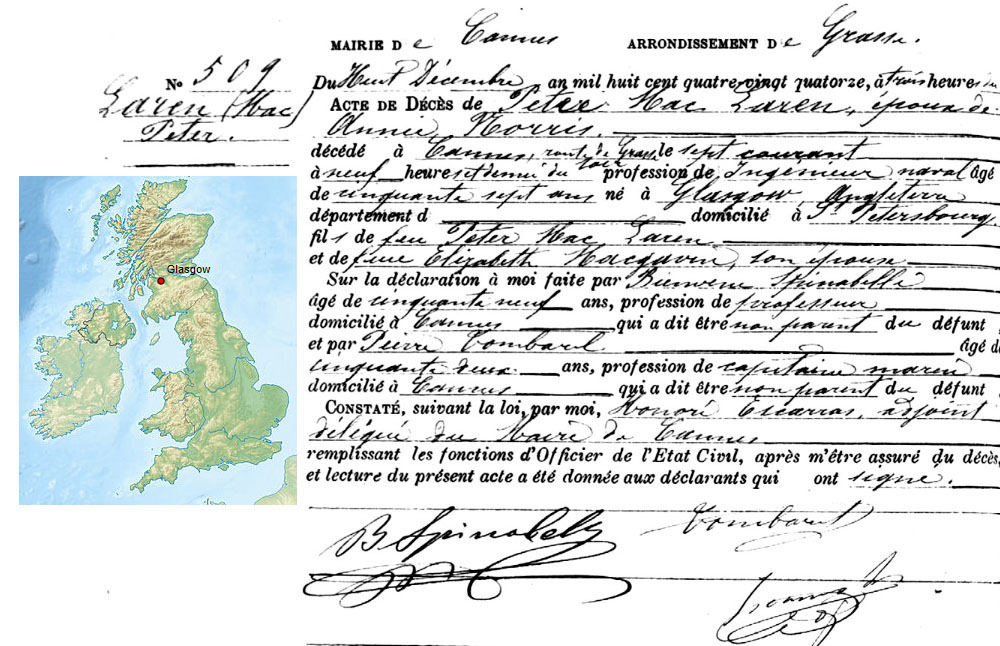 MAIRIE De Cannes ARRONDISSEMENT De Grasse.
No 509
Laren (Mac
Peter.
Du Huit Décembre an mil huit cent quatre-vingt quatorze, à trois heures du
ACTE DE DÉCÈS de Peter Mac Laren, époux de
Annie Norris.
décédé à Cannes, route de Grasse le sept courant
à neuf heures et demie du soir profession de Ingénieur naval âgé
de cinquante sept ans né à Glasgow Angleterre
département d domicilié à St Petersbourg.
fils de feu Peter Mac Laren
et de feue Elizabeth son épouse
Sur la déclaration à moi faite par Bienvenu Spinabelle
âgé de cinquante neuf ans, profession de professeur
domicilié à Cannes qui a dit être non parent du défunt
et par Pierre Vombarel âgé de
cinquante deux ans, profession de capitaine marin
domicilié à Cannes qui a dit être non parent du défunt
CONSTATÉ, suivant la loi, par moi, Honoré Escarras, adjoint
délégué du Maire de Cannes
remplissant les fonctions d'Officier de l'Etat Civil, après m'être assuré du décès,
et lecture du présent acte a été donnée aux déclarants qui ont signé.
B Spinabely
Glasgow